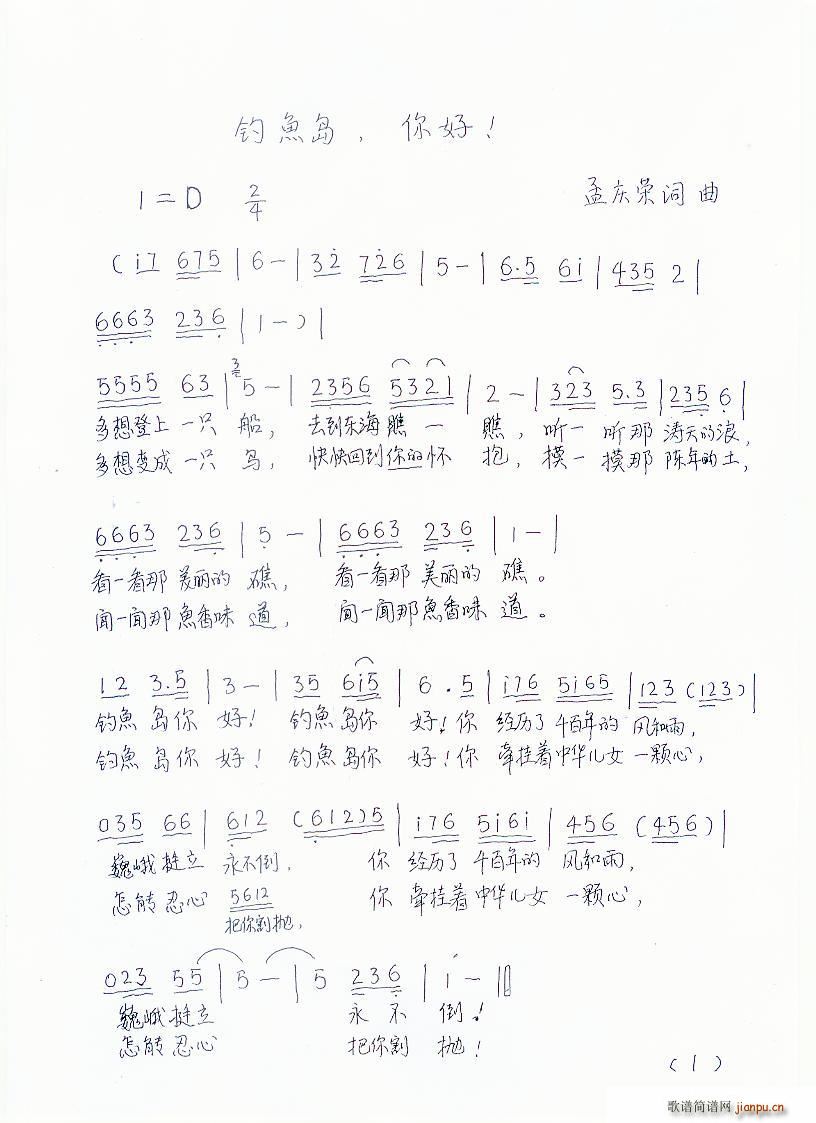 钓魚岛，你好！
1=D 2/4 孟庆荣词曲
(i7 675 | 6 - | 32 726 | 5 - | 6.5 6i | 435 2 |
6663 236 | 1 - ) |
5555 63 | 3 5 - | 2356 5321 | 2 - | 323 5.3 | 235 6 |
多想登上一只船，去到东海瞧一瞧，听一听那涛天的浪，
多想变成一只鸟，快快回到你的怀抱，摸一摸那陈年的土，
6663 236 | 5 - | 6663 236 | 1 - |
看一看那美丽的礁，看一看那美丽的礁。
闻一闻那魚香味道，闻一闻那魚香味道。
12 3.5 | 3 - | 35 6i5 | 6 . 5 | i76 5i65 | 123 (123) |
钓魚岛你好！钓魚岛你好！你经历了千百年的风和雨，
钓魚岛你好！钓魚岛你好！你牵挂着中华儿女一颗心，
035 66 | 612 (612)5 | i76 5i6i | 456 (456) |
巍峨挺立永不倒，你经历了千百年的风和雨，
怎能忍心 5612 你牵挂着中华儿女一颗心，
把你割抛，
023 55 | 5 - | 5 236 | i - ‖
巍峨挺立永不倒！
怎能忍心把你割抛！
(1)
歌谱简谱网 jianpu.cn